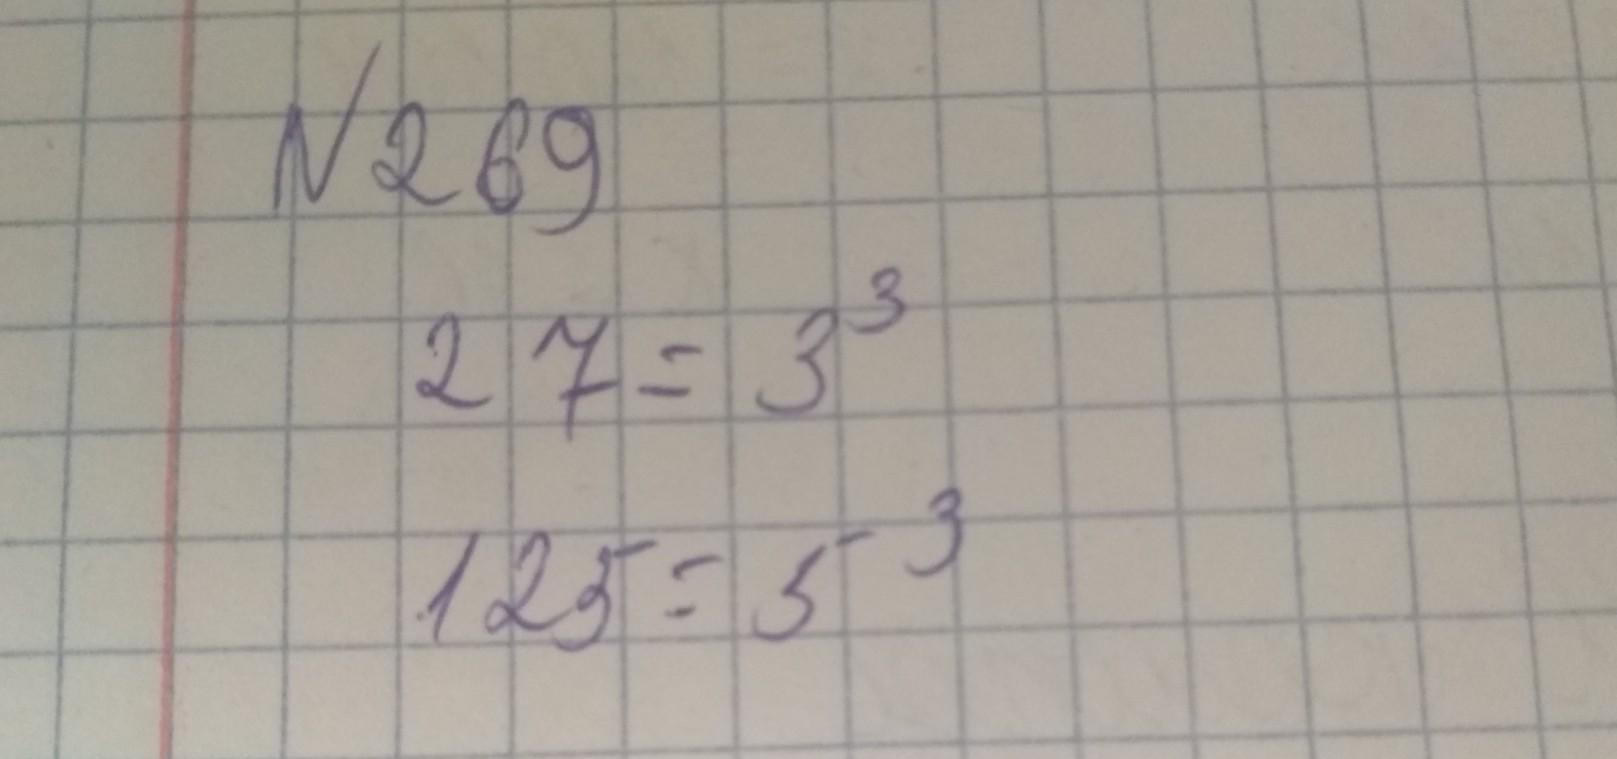 N 269
27 = 3³
125 = 5³